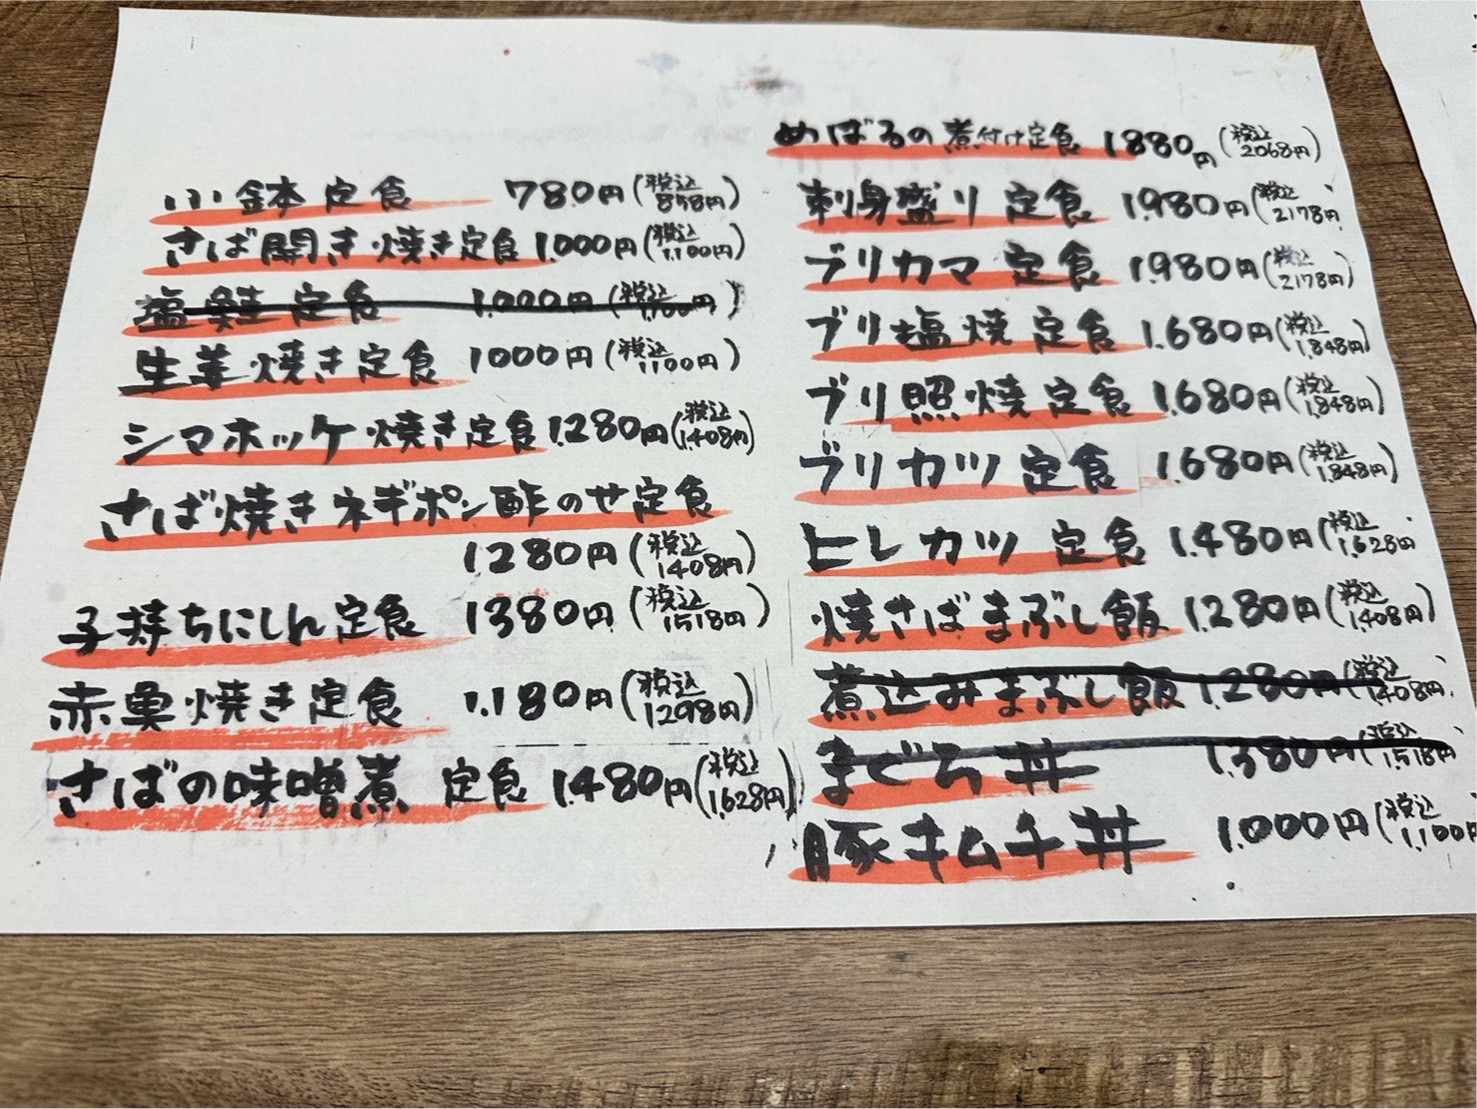 小鉢定食 780円(税込858円)
さば開き焼き定食 1.000円(税込1,100円)
塩鮭定食 1.000円(税込1,100円)
生姜焼き定食 1000円(税込1100円)
シマホッケ焼き定食 1.280円(税込1,408円)
さば焼きネギポン酢のせ定食
1.280円(税込1,408円)
子持ちにしん定食 1380円(税込1,518円)
赤魚焼き定食 1.180円(税込1298円)
さばの味噌煮 定食 1.480円(税込1.628円)
めばるの煮付け定食 1880円(税込2068円)
刺身盛り定食 1.980円(税込2178円
ブリカマ定食 1.980円(税込2178円)
ブリ塩焼定食 1.680円(税込1,848円)
ブリ照焼定食 1.680円(税込1,848円)
ブリカツ定食 1.680円(税込1,848円)
ヒレカツ定食 1.480円(税込1,628円
焼さばまぶし飯 1.280円(税込1,408円)
煮込みまぶし飯 1.280円(税込1,408円)
まぐろ丼 1.380円(税込1,518円)
豚キムチ丼 1.000円(税込1,100円